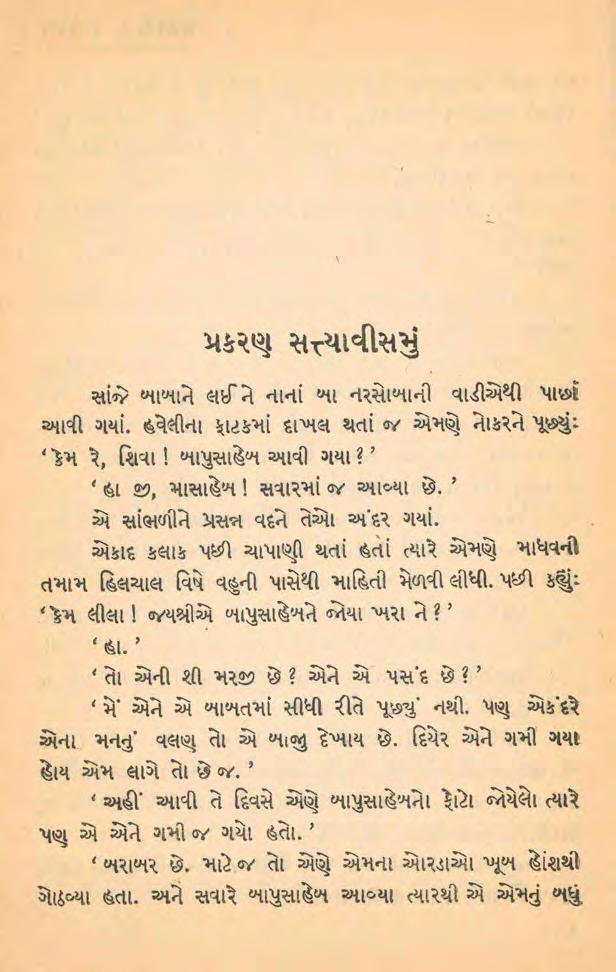 પ્રકરણ સત્ત્યાવીસમું
સાંજે બાબાને લઈને નાનાં બા નરસોબાની વાડીએથી પાછાં
આવી ગયાં. હવેલીના ફાટકમાં દાખલ થતાં જ એમણે નોકરને પૂછ્યુંઃ
‘કેમ રે, શિવા! બાપુસાહેબ આવી ગયા?’
‘હા જી, માસાહેબ! સવારમાં જ આવ્યા છે.’
એ સાંભળીને પ્રસન્ન વદને તેઓ અંદર ગયાં.
એકાદ કલાક પછી ચાપાણી થતાં હતાં ત્યારે એમણે માધવની
તમામ હિલચાલ વિષે વહુની પાસેથી માહિતી મેળવી લીધી. પછી કહ્યુંઃ
‘કેમ લીલા! જયશ્રીએ બાપુસાહેબને જોયા ખરા ને?’
‘હા.’
‘તો એની શી મરજી છે? એને એ પસંદ છે?’
‘મેં એને એ બાબતમાં સીધી રીતે પૂછ્યું નથી. પણ એકંદરે
એના મનનું વલણ તો એ બાજુ દેખાય છે. દિયેર એને ગમી ગયા
હોય એમ લાગે તો છે જ.’
‘અહીં આવી તે દિવસે એણે બાપુસાહેબનો ફોટો જોયેલો ત્યારે
પણ એ એને ગમી જ ગયો હતો.’
‘બરાબર છે. માટે જ તો એણે એમના ઓરડાઓ ખૂબ હોંશથી
ગોઠવ્યા હતા. અને સવારે બાપુસાહેબ આવ્યા ત્યારથી એ એમનું બધું